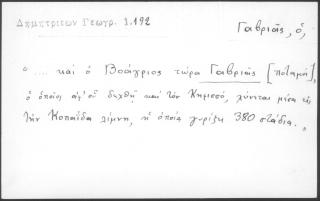 Δημητριέων Γεωγρ. 1.192
Γαβριᾶς, ὁ,
" .... καὶ ὁ Βοάγριος τώρα Γαβριᾶς [ποταμός],
ὁ ὁποῖος ἀφ' οὗ δεχθῇ καὶ τὸν Κηφισσό, χύνεται μέσα εἰς
τὴν Κοπαΐδα λίμνη, ἡ ὁποία γυρίζει 380 στάδια. "